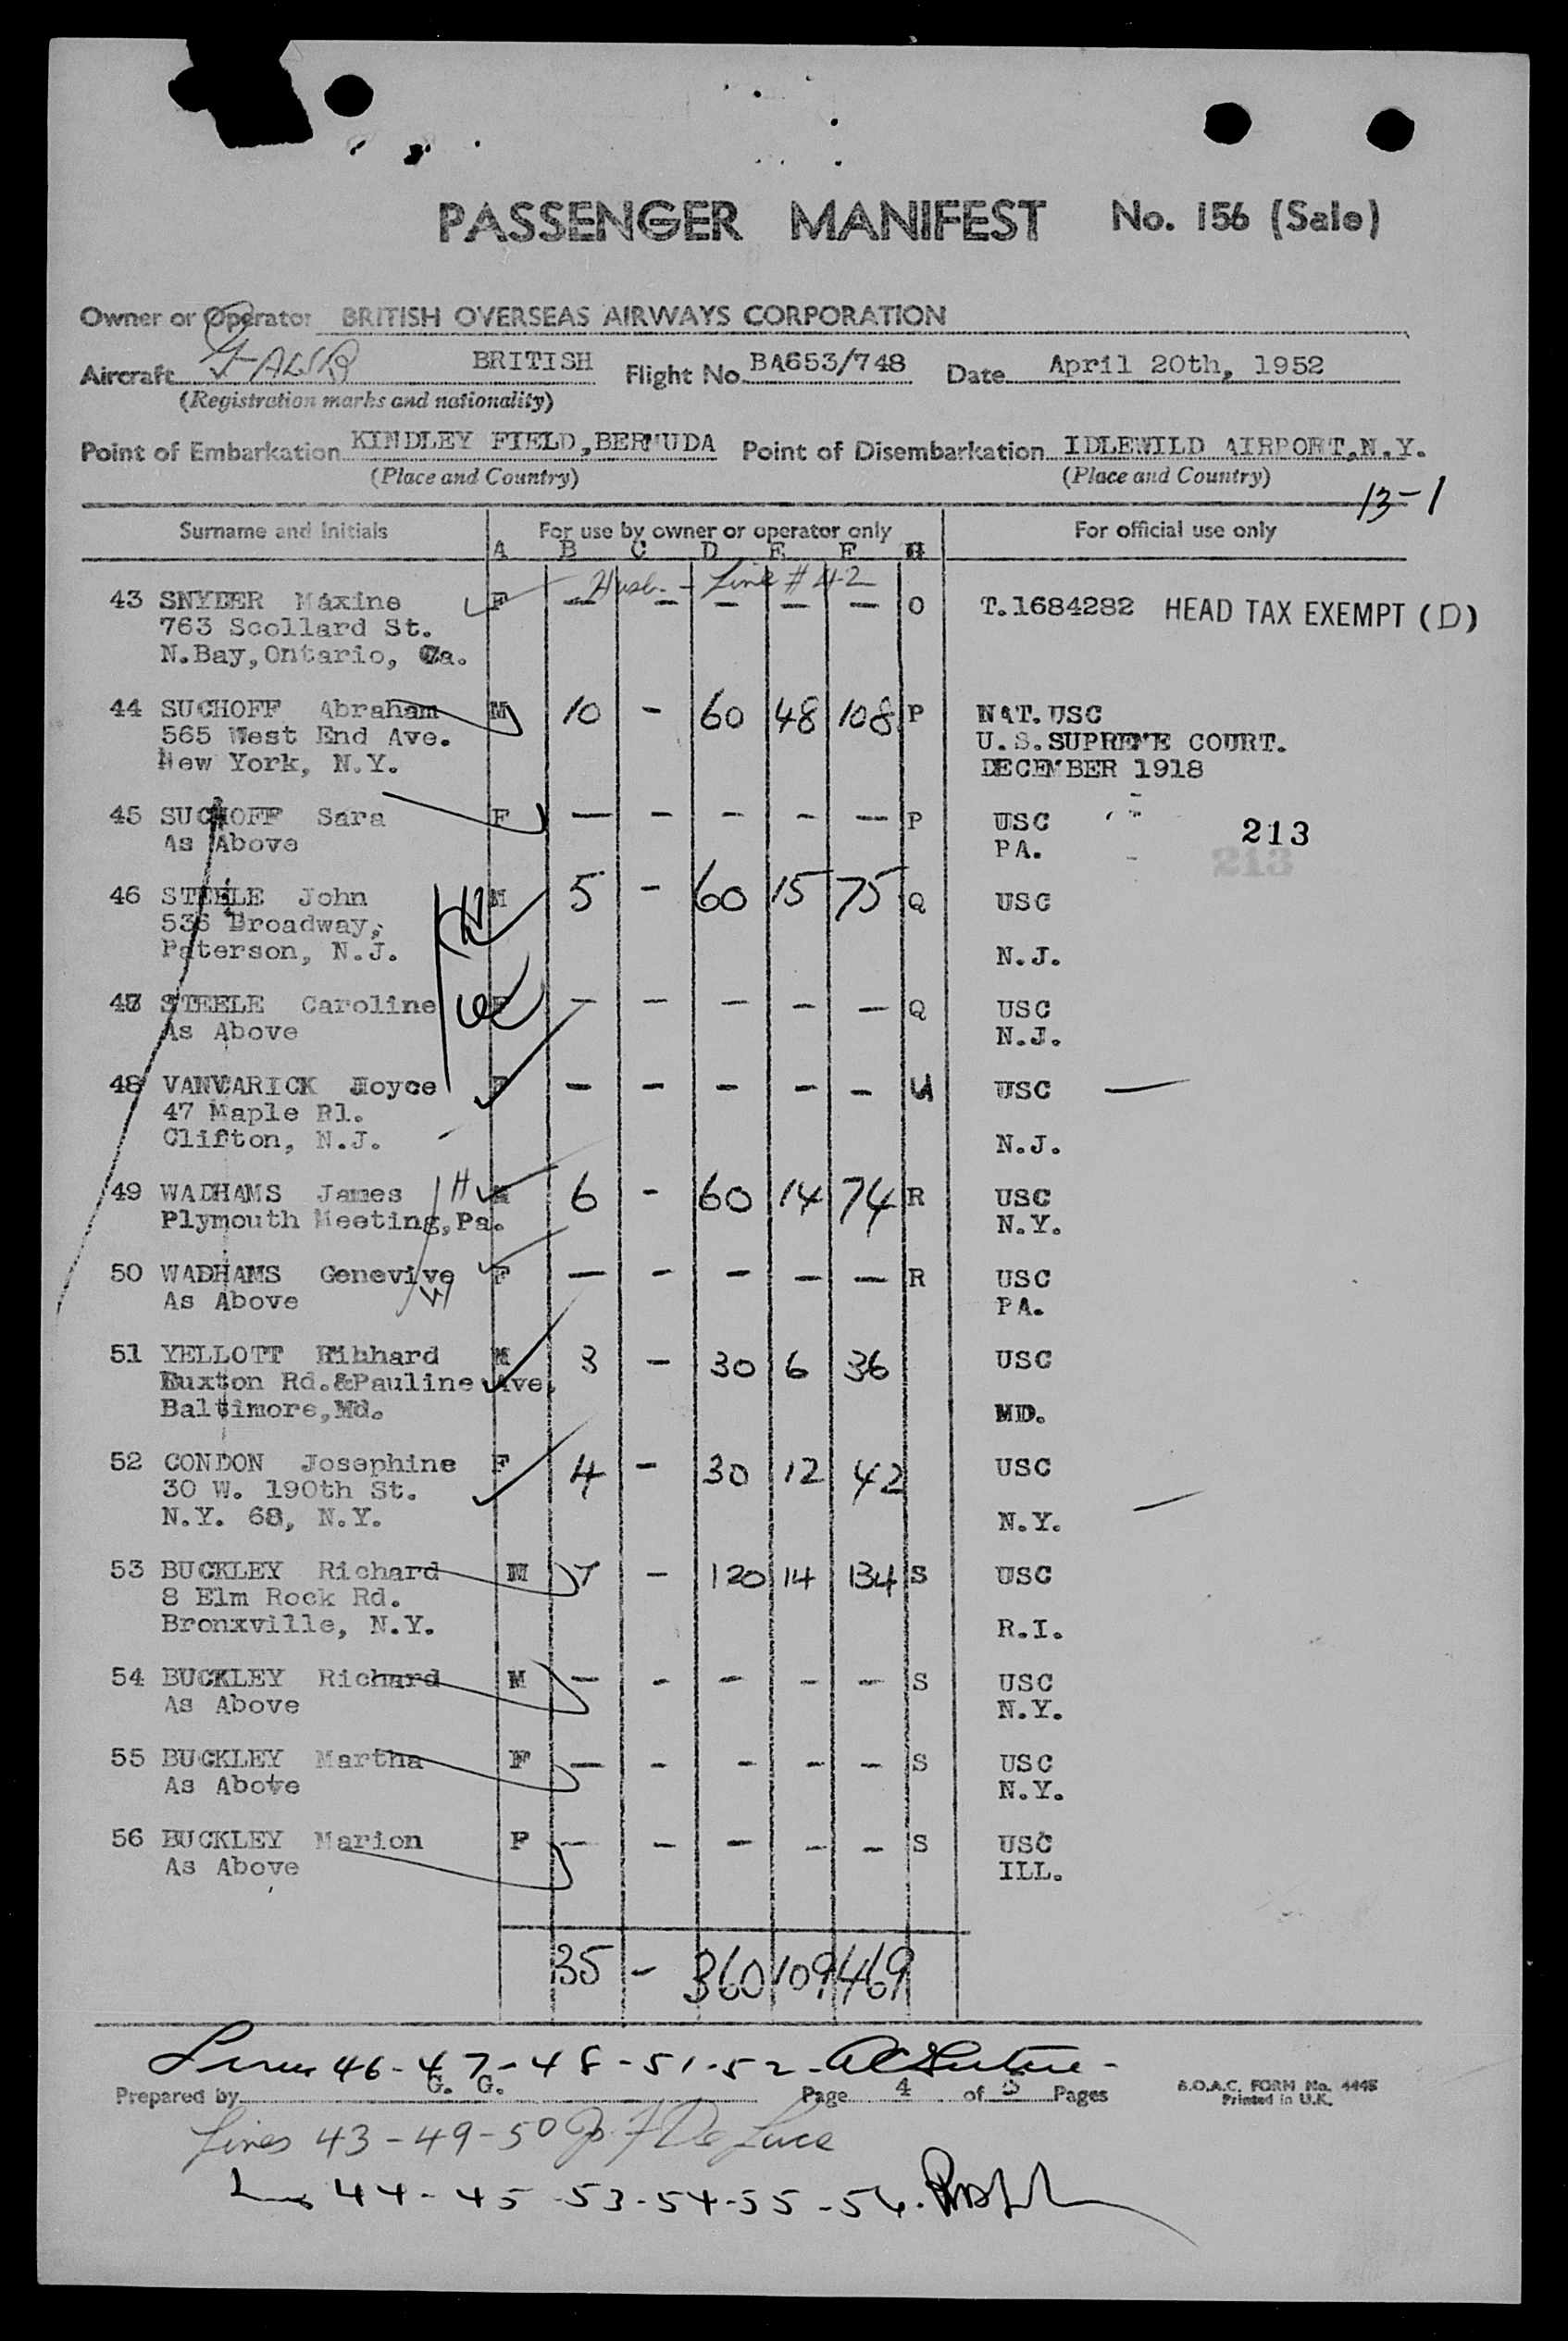 PASSENGER MANIFEST No. 156 (Sale)
Owner or Operator BRITISH OVERSEAS AIRWAYS CORPORATION
Aircraft BRITISH Flight No. BA653/748 Date April 20th, 1952
(Registration marks and nationality)
Point of Embarkation KINDLEY FIELD, BERMUDA Point of Disembarkation IDLEWILD AIRPORT, N.Y.
(Place and Country) (Place and Country)
13-1
Surname and Initials For use by owner or operator only For official use only
A B C D E F H
Husb. - Line #42
43 SNYDER Maxine F — — — — — O T.1684282 HEAD TAX EXEMPT (D)
763 Scollard St.
N.Bay, Ontario, Ca.
44 SUCHOFF Abraham M 10 - 60 48 108 P NAT. USC
565 West End Ave. U.S. SUPREME COURT.
New York, N.Y. DECEMBER 1918
45 SUCHOFF Sara F — — — — — P USC 213
As Above PA. 213
46 STEELE John M 5 - 60 15 75 Q USC
536 Broadway,
Paterson, N.J. N.J.
47 STEELE Caroline F — — — — — Q USC
As Above N.J.
48 VANWARICK Joyce F — — — — — U USC —
47 Maple Pl.
Clifton, N.J. N.J.
49 WADHAMS James H M 6 - 60 14 74 R USC
Plymouth Meeting, Pa. N.Y.
50 WADHAMS Genevive W F — — — — — R USC
As Above PA.
51 YELLOTT Rihhard M 3 - 30 6 36 USC
Ruxton Rd.&Pauline Ave.
Baltimore, Md. MD.
52 CONDON Josephine F 4 - 30 12 42 USC
30 W. 190th St.
N.Y. 68, N.Y. N.Y. —
53 BUCKLEY Richard M 7 - 120 14 134 S USC
8 Elm Rock Rd.
Bronxville, N.Y. R.I.
54 BUCKLEY Richard M — — — — — S USC
As Above N.Y.
55 BUCKLEY Martha F — — — — — S USC
As Above N.Y.
56 BUCKLEY Marion F — — — — — S USC
As Above ILL.
35 - 360 109 469
Lines 46-47-48-51-52-
Prepared by G. G. Page 4 of 5 Pages B.O.A.C. FORM No. 4445
Printed in U.K.
Lines 43-49-50 J. F. De Luca
44-45-53-54-55-56.